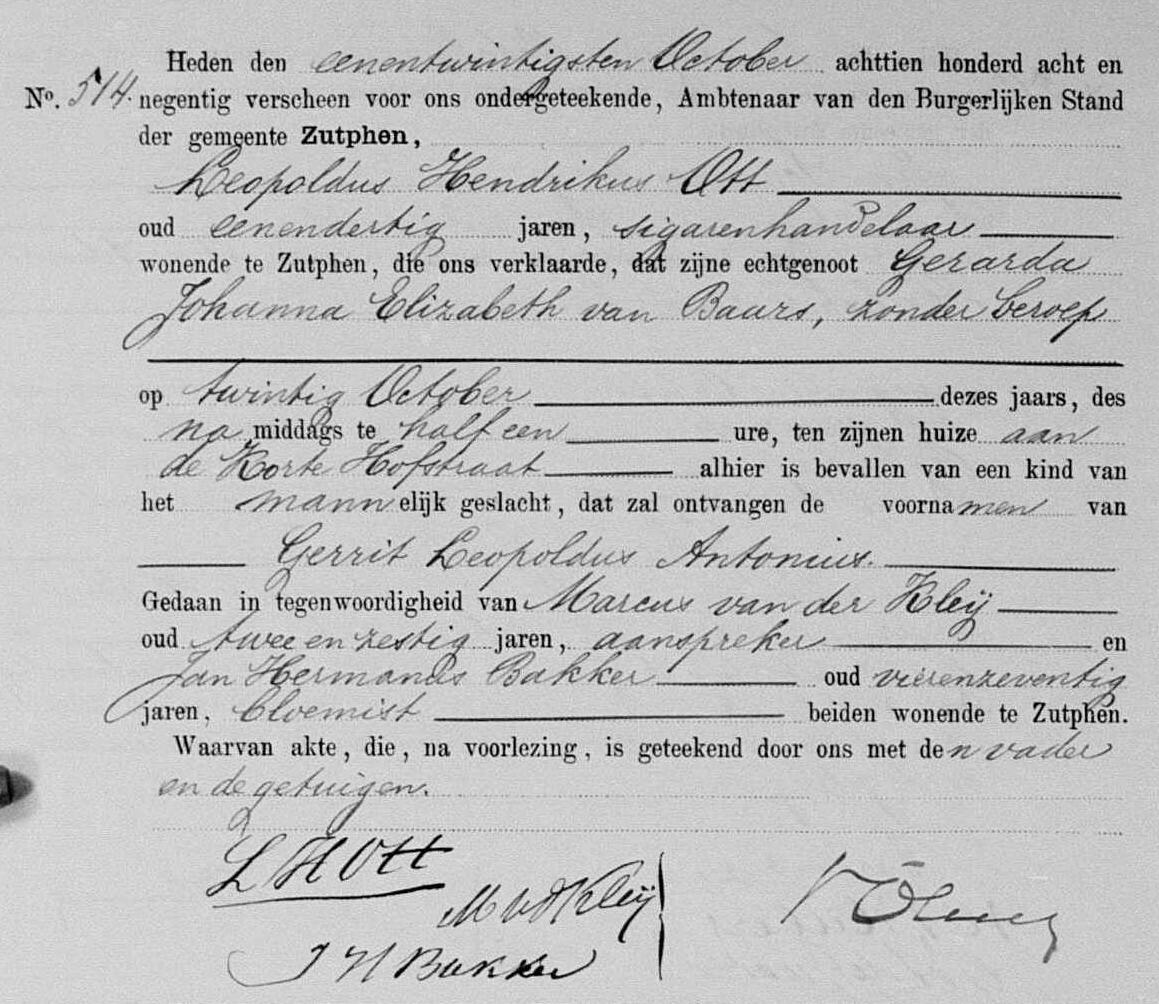 Heden den eenentwintigsten October achttien honderd acht en
No. 514. negentig verscheen voor ons ondergeteekende, Ambtenaar van den Burgerlijken Stand
der gemeente Zutphen,
Leopoldus Hendrikus Ott
oud eenendertig jaren, sigarenhandelaar
wonende te Zutphen, die ons verklaarde, dat zijne echtgenoot Gerarda
Johanna Elizabeth van Baars, zonder beroep
op twintig October dezes jaars, des
na middags te half een ure, ten zijnen huize aan
de Korte Hofstraat alhier is bevallen van een kind van
het mannelijk geslacht, dat zal ontvangen de voornamen van
Gerrit Leopoldus Antonius.
Gedaan in tegenwoordigheid van Marcus van der Kleij
oud twee en zestig jaren, aanspreker en
Jan Hermanus Bakker oud vierenzeventig
jaren, bloemist beiden wonende te Zutphen.
Waarvan akte, die, na voorlezing, is geteekend door ons met den vader
en de getuigen.
L H Ott
M v d Kleij
J H Bakker